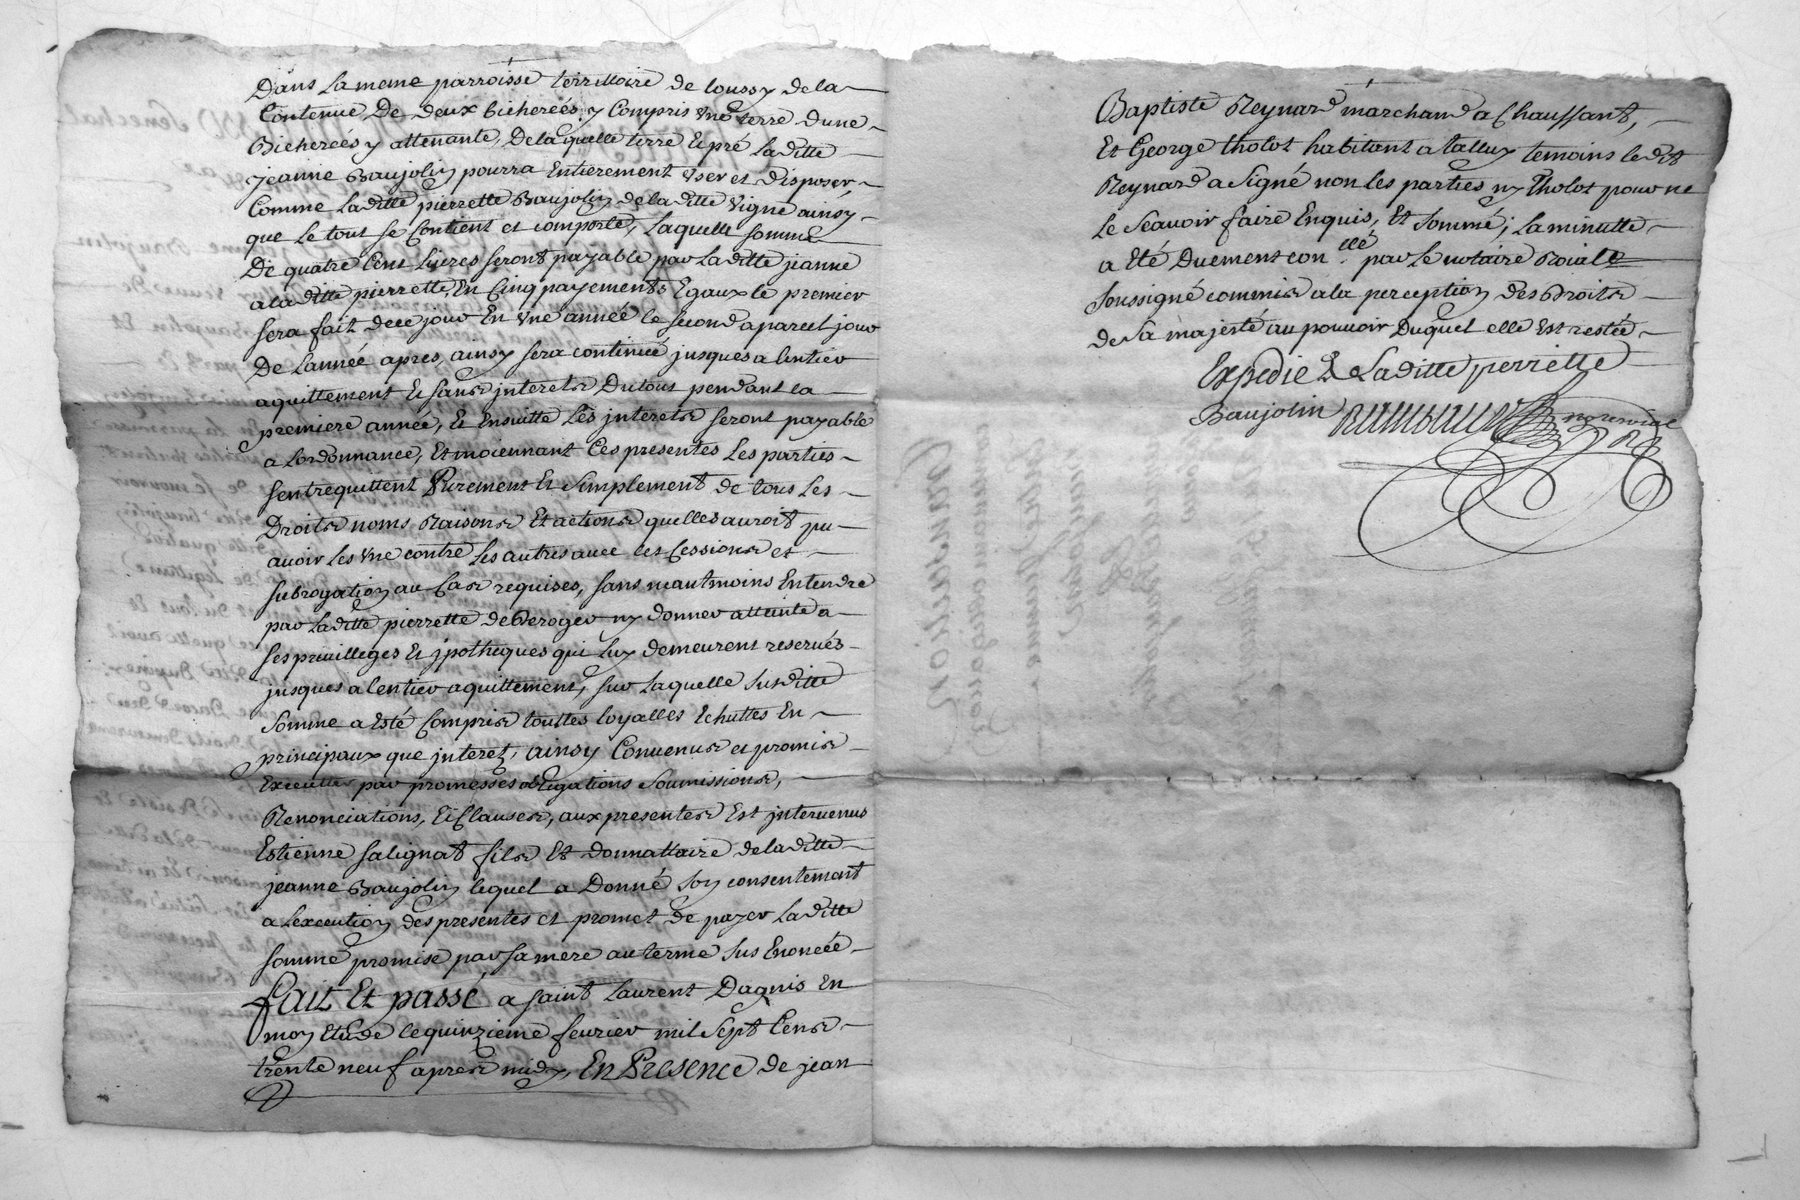 Dans la meme parroisse territtoire de loussy de la
Contenue De deux bicherées y Compris vne terre dune
Bicherées y attenante, De laquelle terre Et pré Laditte
Jeanne Baujolin pourra Entierement vser et disposer
Comme Laditte pierrette Baujolin de laditte vigne ainsy
que le tout se Contient et comporte, Laquelle somme
De quatre Cent Livres seront payable par Laditte jeanne
a laditte pierrette, En Cinq payements Egaux le premier
sera fait de ce jour En vne année le second a pareil jour
De Lannée apres, ainsy sera continué jusques a lentier
aquittement Et sans interets Dutout pendant la
premiere année, Et Ensuitte Les interets seront payable
a Lordonnance, Et moiennant Ces presentes Les parties
sentrequittent Purement Et Simplement de tous Les
Droits noms Raisons Et actions quelles auroit pu
auoir Les vne contre Les autres auec les Cessions et
subrogation au Cas requises, sans neautmoins Entendre
par Laditte pierrette de Deroger ny donner atteinte a
ses priuilleges Et ypotheques qui luy demeurent reserués
jusques a lentier aquittement, sur Laquelle susditte
somme a Esté Compris touttes loyalles Echuttes En
principaux que interet, ainsy Conuenus et promis
Executter par promesses obligations Soumissions,
Renonciations, Et Clauses, aux presentes Est interuenus
Estienne salignat fils Et donnattaire de laditte
jeanne Baujolin lequel a Donné son consentement
a Lexecution des presentes et promet de payer Laditte
somme promise par sa mere au terme sus Enoncée
fait Et passé a saint Laurent Dagnis En
mon Etude le quinzieme feurier mil sept Cens
trente neuf apres midy, En Presence de jean
Baptiste Reynard marchand a Chaussant,
Et George tholot habitant a talluy temoins ledit
Reynard a Signé non les parties ny Tholot pour ne
le Scauoir faire Enquis, Et Sommé; La minutte
a Eté Duement con llé par le notaire Roial
soussigné commis a la perception des Droits
de Sa majesté au pouuoir Duquel elle Est restée
Expedié a Laditte perrette
Baujolin